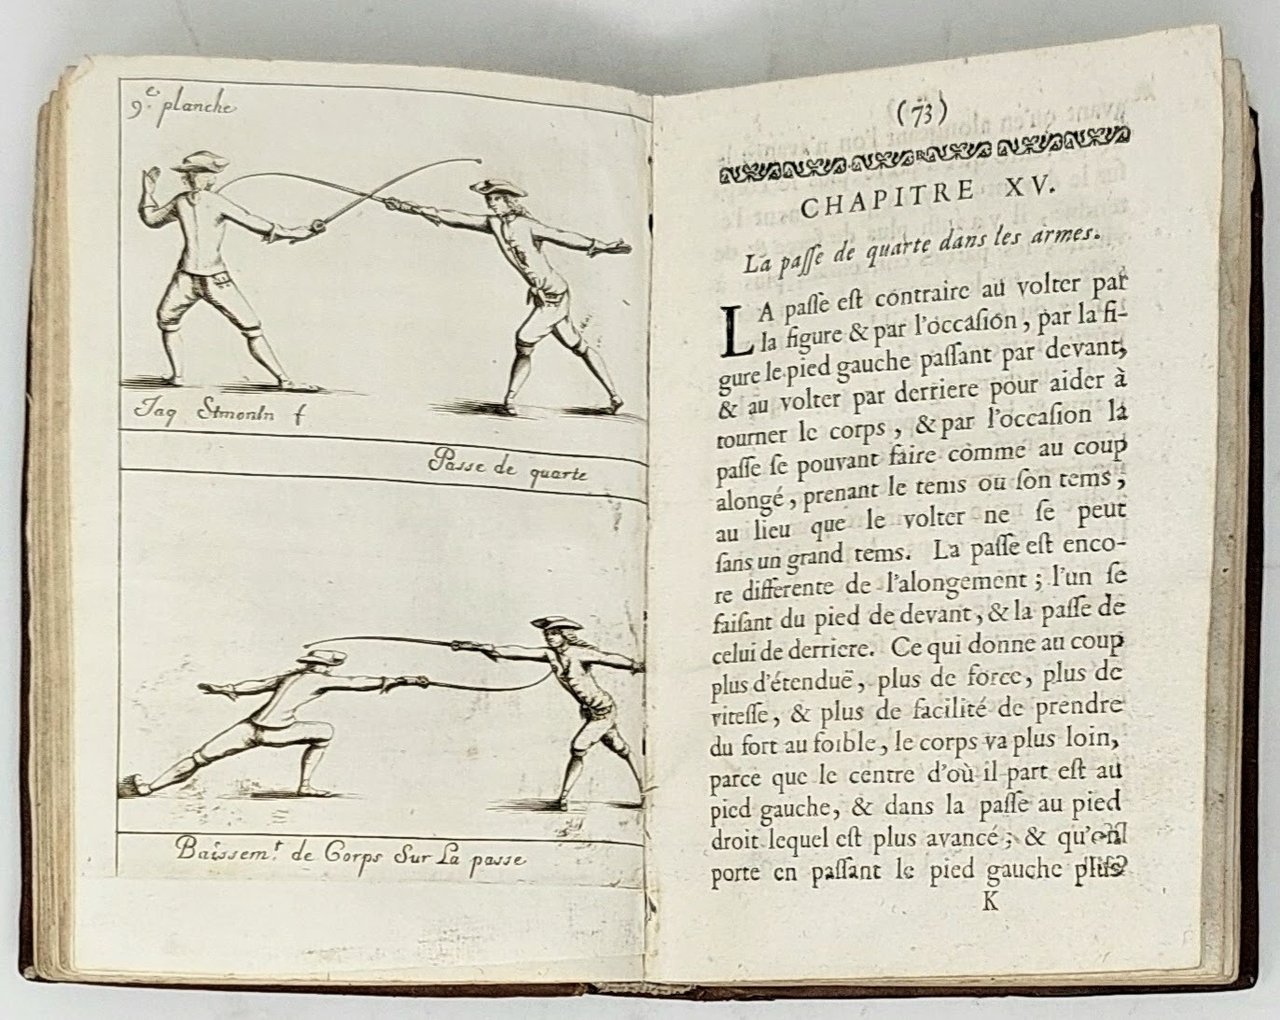 9.e planche
Jaq Simonin f
Passe de quarte
Baissem.t de Corps Sur La passe
(73)
CHAPITRE XV.
La paſſe de quarte dans les armes.
LA paſſe eſt contraire au volter par
la figure & par l'occaſion, par la fi-
gure le pied gauche paſſant par devant,
& au volter par derriere pour aider à
tourner le corps, & par l'occaſion la
paſſe ſe pouvant faire comme au coup
alongé, prenant le tems ou ſon tems,
au lieu que le volter ne ſe peut
ſans un grand tems. La paſſe eſt enco-
re differente de l'alongement; l'un ſe
faiſant du pied de devant, & la paſſe de
celui de derriere. Ce qui donne au coup
plus d'étenduë, plus de force, plus de
viteſſe, & plus de facilité de prendre
du fort au foible, le corps va plus loin,
parce que le centre d'où il part eſt au
pied gauche, & dans la paſſe au pied
droit lequel eſt plus avancé; & qu'on
porte en paſſant le pied gauche plus
K